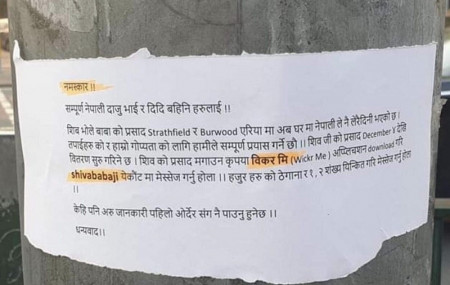 नमस्कार ।।
सम्पूर्ण नेपाली दाजु भाई र दिदि बहिनि हरुलाई ।।
शिब भोले बाबा को प्रसाद Strathfield र Burwood एरिया मा अब घर मा नेपाली ले नै लेरैदिनी भएको छ ।
तपाईहरु को र हाम्रो गोप्यता को लागि हामीले सम्पूर्ण प्रयास गर्ने छौ ।। शिब जी को प्रसाद December ४ देखि
वितरण सुरु गरिने छ । शिब को प्रसाद मगाउन कृपया विकर मि (Wickr Me) अप्लिचशान download गरि
shivababaji येकौंट मा मेस्सेज गर्नु होला ।। हजुर हरु को ठेगाना र १, २ शंख्य पिन्कित गरि मेस्सेज गर्नु होला
केहि पनि अरु जानकारी पहिलो ओर्देर संग नै पाउनु हुनेछ ।।
धन्यवाद।।